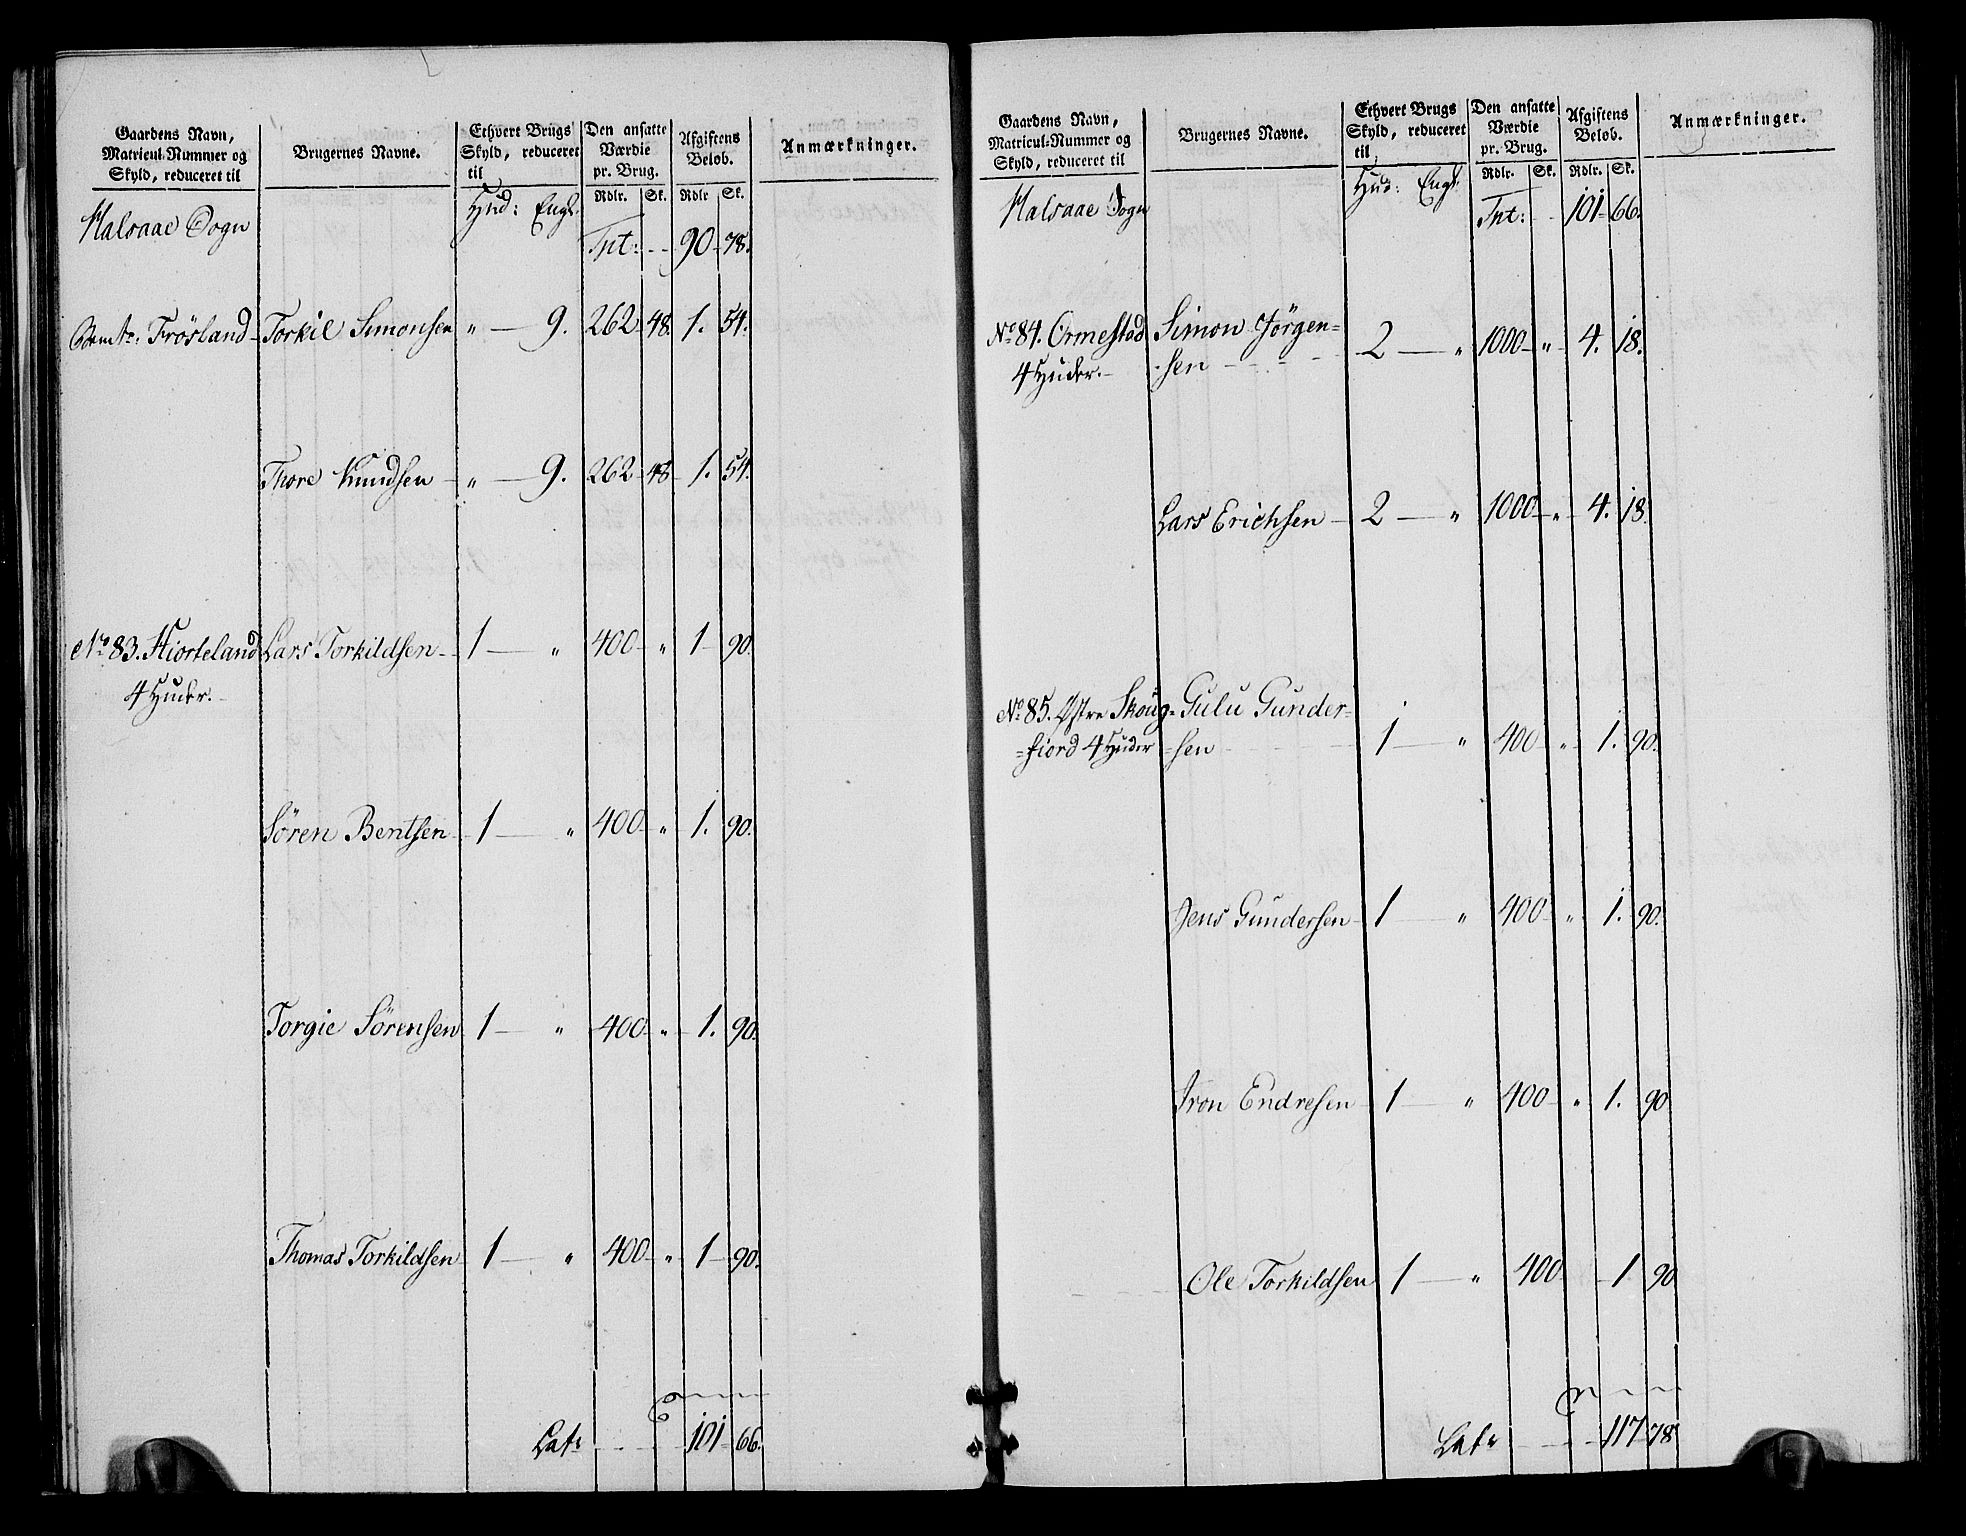 Gaardens Navn,
Matricul-Nummer og
Skyld, reduceret til
Brugernes Navne.
Ethvert Brugs
Skyld, reduceret
til
Den ansatte
Værdie
pr. Brug.
Afgiftens
Beløb.
Anmærkninger.
Rdlr. Sk. Rdlr Sk.
Halsaae Sogn Hud: Engl.
Tpt: 90 78.
Bemte: Frösland Torkil Simonsen " 9. 262 48. 1. 54.
Thore Knudsen " 9. 262 48 1. 54.
No 83. Hiorteland Lars Torkildsen 1 " 400 " 1 90.
4 Huder.
Sören Bentsen 1 " 400 " 1. 90.
Torgie Sörensen 1 " 400 " 1. 90.
Thomas Torkildsen 1 " 400 " 1 90.
Lats 101 66.
Gaardens Navn,
Matricul-Nummer og
Skyld, reduceret til
Brugernes Navne.
Ethvert Brugs
Skyld, reduceret
til
Den ansatte
Værdie
pr. Brug.
Afgiftens
Beløb.
Anmærkninger.
Rdlr. Sk. Rdlr. Sk.
Halsaae Sogn Hud: Engl.
Tpt: 101 66.
No 84. Ormestad Simon Jörgen=
4 Huder. =sen 2 " 1000 " 4. 18.
Lars Erichsen 2 " 1000 " 4. 18.
No 85. Østre Skoug= Gulu Gunder=
=fiord 4 Huder =sen 1 " 400 " 1. 90.
Jens Gundersen 1 " 400 " 1. 90.
Iron Endresen 1 " 400 " 1. 90
Ole Torkildsen 1 " 400 1 90
Lats 117 78